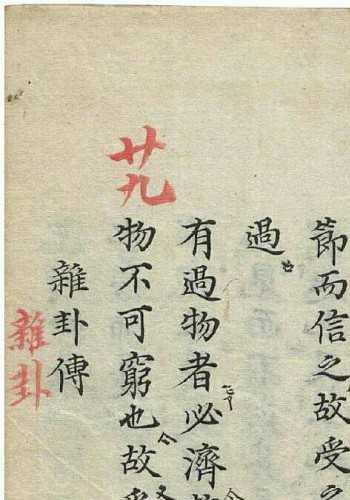 節而信之故受之
過
有過物者必濟
物不可窮也故受
雜卦傳
廿九
雜卦